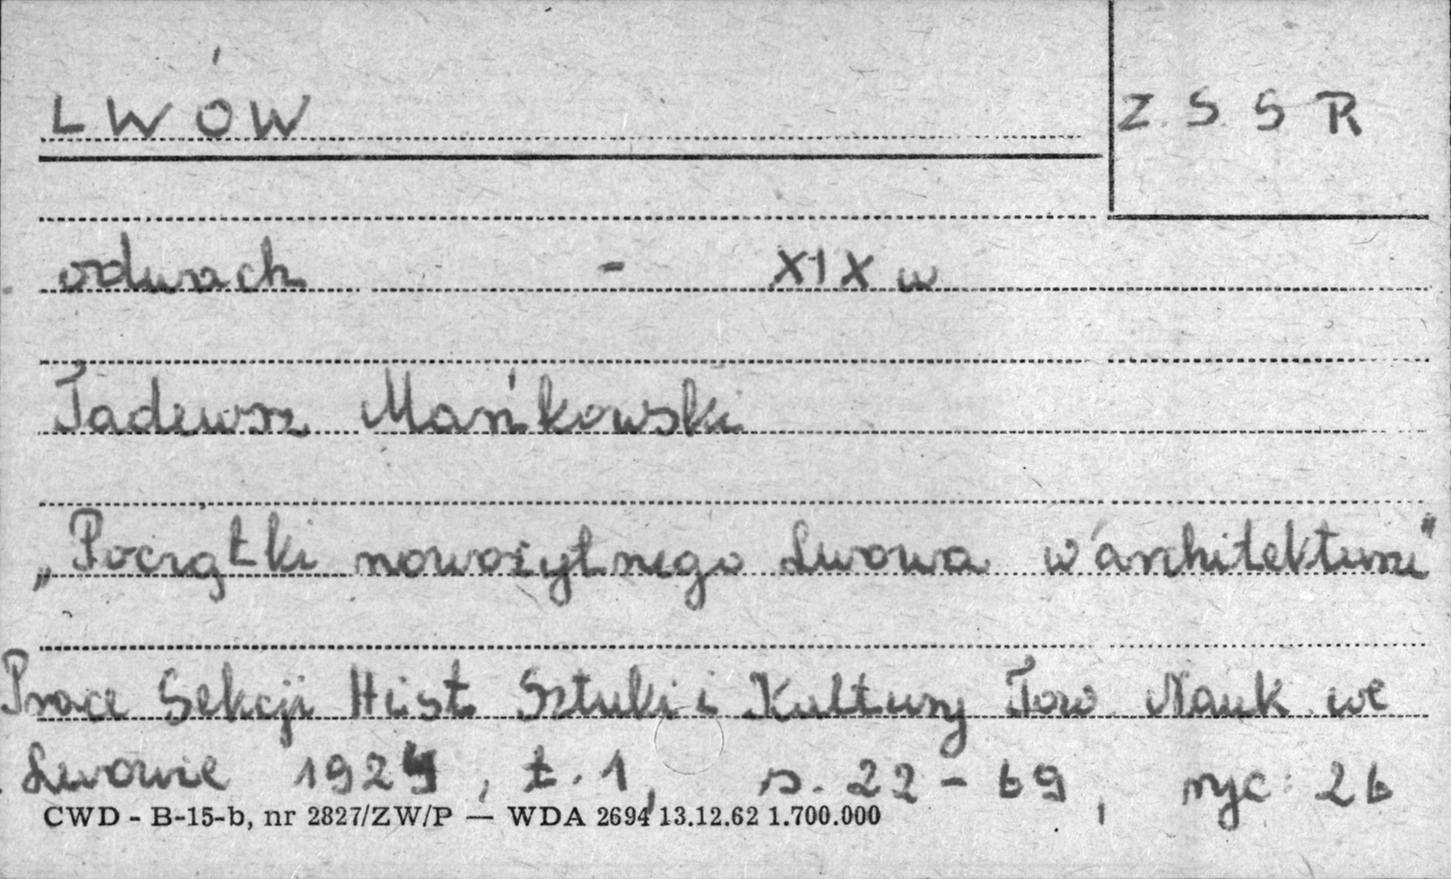 LWÓW
Z.S.S.R
odwach - XIX w
Tadeusz Mańkowski
„Początki nowożytnego Lwowa w architekturze"
Prace Sekcji Hist. Sztuki i Kultury Tow. Nauk we
Lwowie 1929, t. 1, s. 22-69, ryc. 26
CWD - B-15-b, nr 2827/ZW/P — WDA 2694 13.12.62 1.700.000